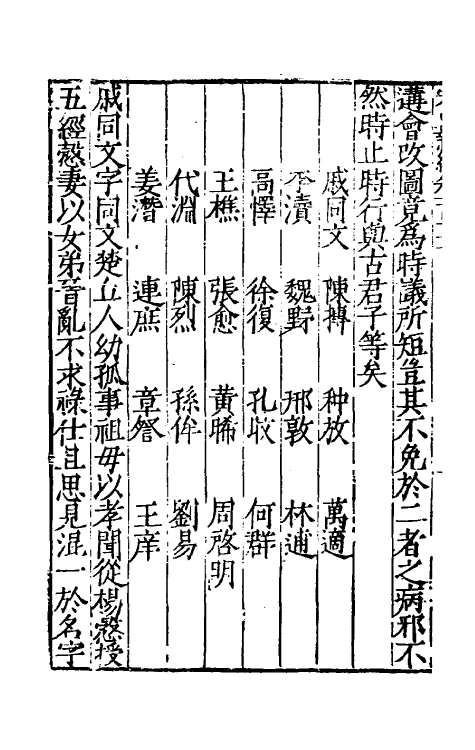 遘會改圖竟為時議所短豈其不免於二者之病邪不
然時止時行與古君子等矣
戚同文 陳摶 种放 萬適
李瀆 魏野 邢敦 林逋
高懌 徐復 孔旼 何群
王樵 張愈 黃晞 周啓明
代淵 陳烈 孫侔 劉易
姜潛 連庶 章詧 王庠
戚同文字同文楚丘人幼孤事祖母以孝聞從楊慤授
五經慤妻以女弟晉亂不求祿仕且思見混一於名字